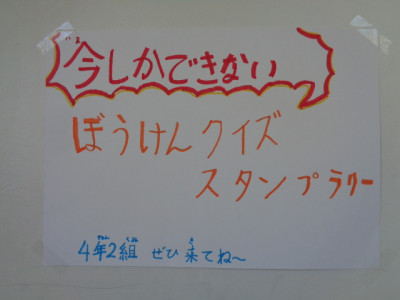 今しかできない
ぼうけんクイズ
スタンプラリー
4年2組 ぜひ来てね〜